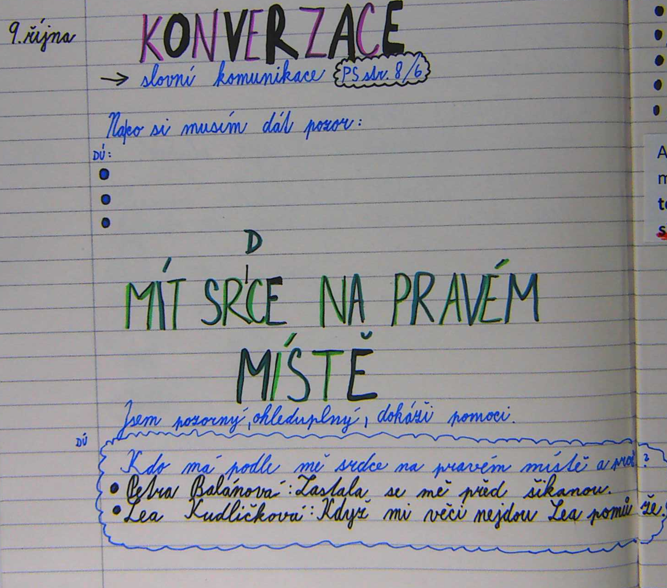 9. října
KONVERZACE
→ slovní komunikace PS str. 8/6
Nako si musím dát pozor:
DÚ:
•
•
•
D
MÍT SRCE NA PRAVÉM
MÍSTĚ
Jsem pozorný, ohleduplný, dokáži pomoci.
DÚ
Kdo má podle mě srdce na pravém místě a proč?
• Petra Balánová: Zastala se mě před šikanou.
• Lea Kudličková: Když mi věci nejdou Lea pomůže.
A
m
t
s